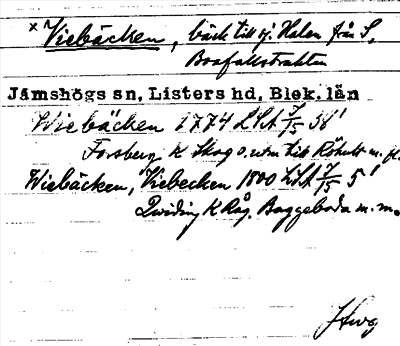 × Viebäcken, bäck till sj. Halen från S.
Boafallstrakten
Jämshögs sn, Listers hd, Blek. län
Wiebäcken 1774 LSA 7/15 56'
Forsberg K Skog o. utm till Röhult m. fl.
Wiebäcken, Viebecken 1800 LSA 7/15 5'
Qwiding K Råg. Baggeboda m. m.